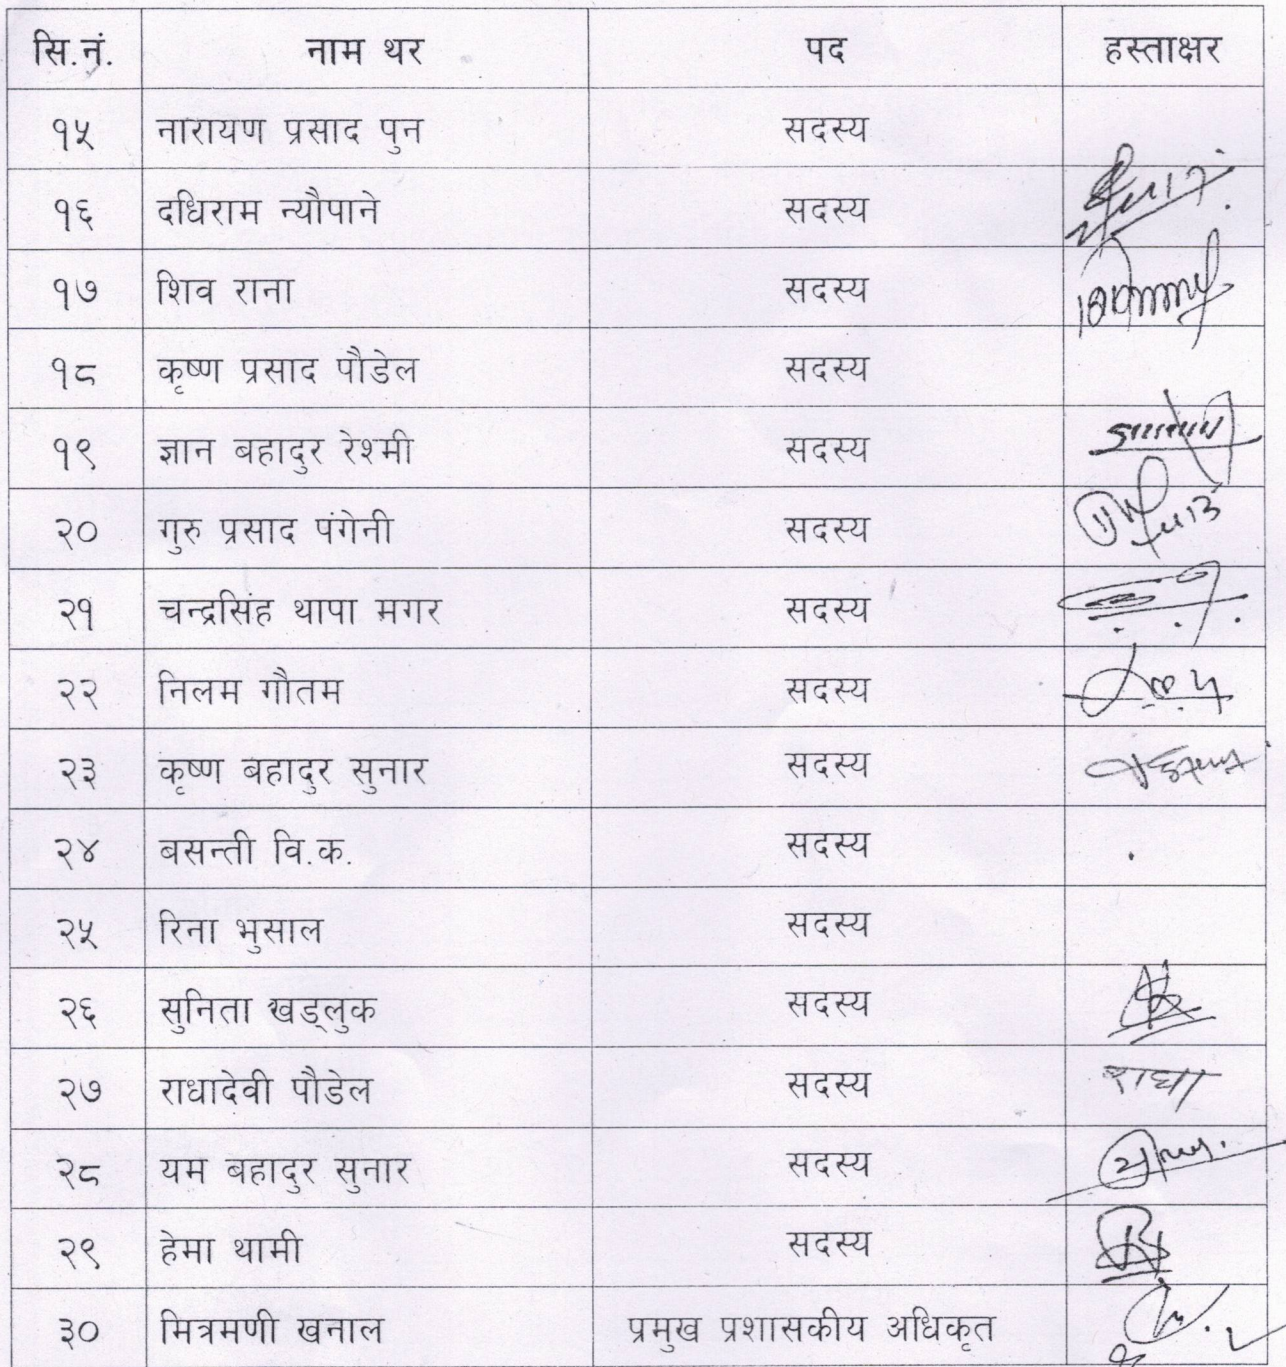 सि.नं. नाम थर पद हस्ताक्षर
१५ नारायण प्रसाद पुन सदस्य
१६ दधिराम न्यौपाने सदस्य
१७ शिव राना सदस्य
१८ कृष्ण प्रसाद पौडेल सदस्य
१९ ज्ञान बहादुर रेश्मी सदस्य
२० गुरु प्रसाद पंगेनी सदस्य
२१ चन्द्रसिंह थापा मगर सदस्य
२२ निलम गौतम सदस्य
२३ कृष्ण बहादुर सुनार सदस्य
२४ बसन्ती वि.क. सदस्य
२५ रिना भुसाल सदस्य
२६ सुनिता खड्लुक सदस्य
२७ राधादेवी पौडेल सदस्य राधा
२८ यम बहादुर सुनार सदस्य
२९ हेमा थामी सदस्य
३० मित्रमणी खनाल प्रमुख प्रशासकीय अधिकृत